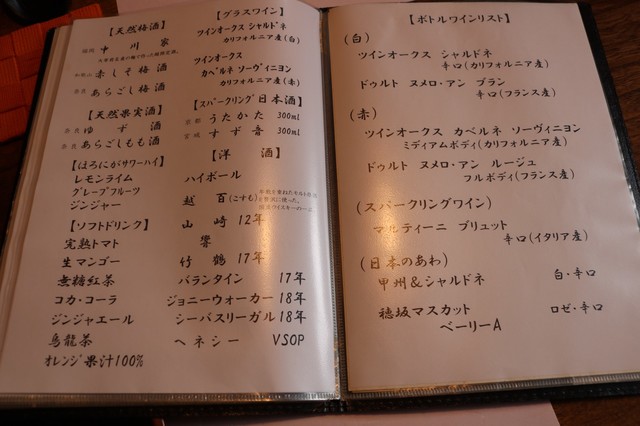 【天然梅酒】
中川家
赤しそ梅酒
奈良 あらごし梅酒
【天然果実酒】
奈良 ゆず酒
奈良 あらごしもも酒
【ほろにがサワーハイ】
レモンライム
グレープフルーツ
ジンジャー
【ソフトドリンク】
完熟トマト
生マンゴー
無糖紅茶
コカ・コーラ
ジンジャエール
烏龍茶
オレンジ果汁100%
【グラスワイン】
ツインオークス シャルドネ
カリフォルニア産(白)
ツインオークス
カベルネ ソーヴィニヨン
カリフォルニア産(赤)
【スパークリング日本酒】
京都 うたかた 300ml
宮城 すず音 300ml
【洋酒】
ハイボール
越百(こすも)
山崎 12年
響
竹鶴 17年
バランタイン 17年
ジョニーウォーカー 18年
シーバスリーガル 18年
ヘネシー VSOP
【ボトルワインリスト】
(白)
ツインオークス シャルドネ
辛口(カリフォルニア産)
ドゥルト ヌメロ・アン ブラン
辛口(フランス産)
(赤)
ツインオークス カベルネ ソーヴィニヨン
ミディアムボディ(カリフォルニア産)
ドゥルト ヌメロ・アン ルージュ
フルボディ(フランス産)
(スパークリングワイン)
マルティーニ ブリュット
辛口(イタリア産)
(日本のあわ)
甲州&シャルドネ 白・辛口
穂坂マスカット ロゼ・辛口
ベーリーA